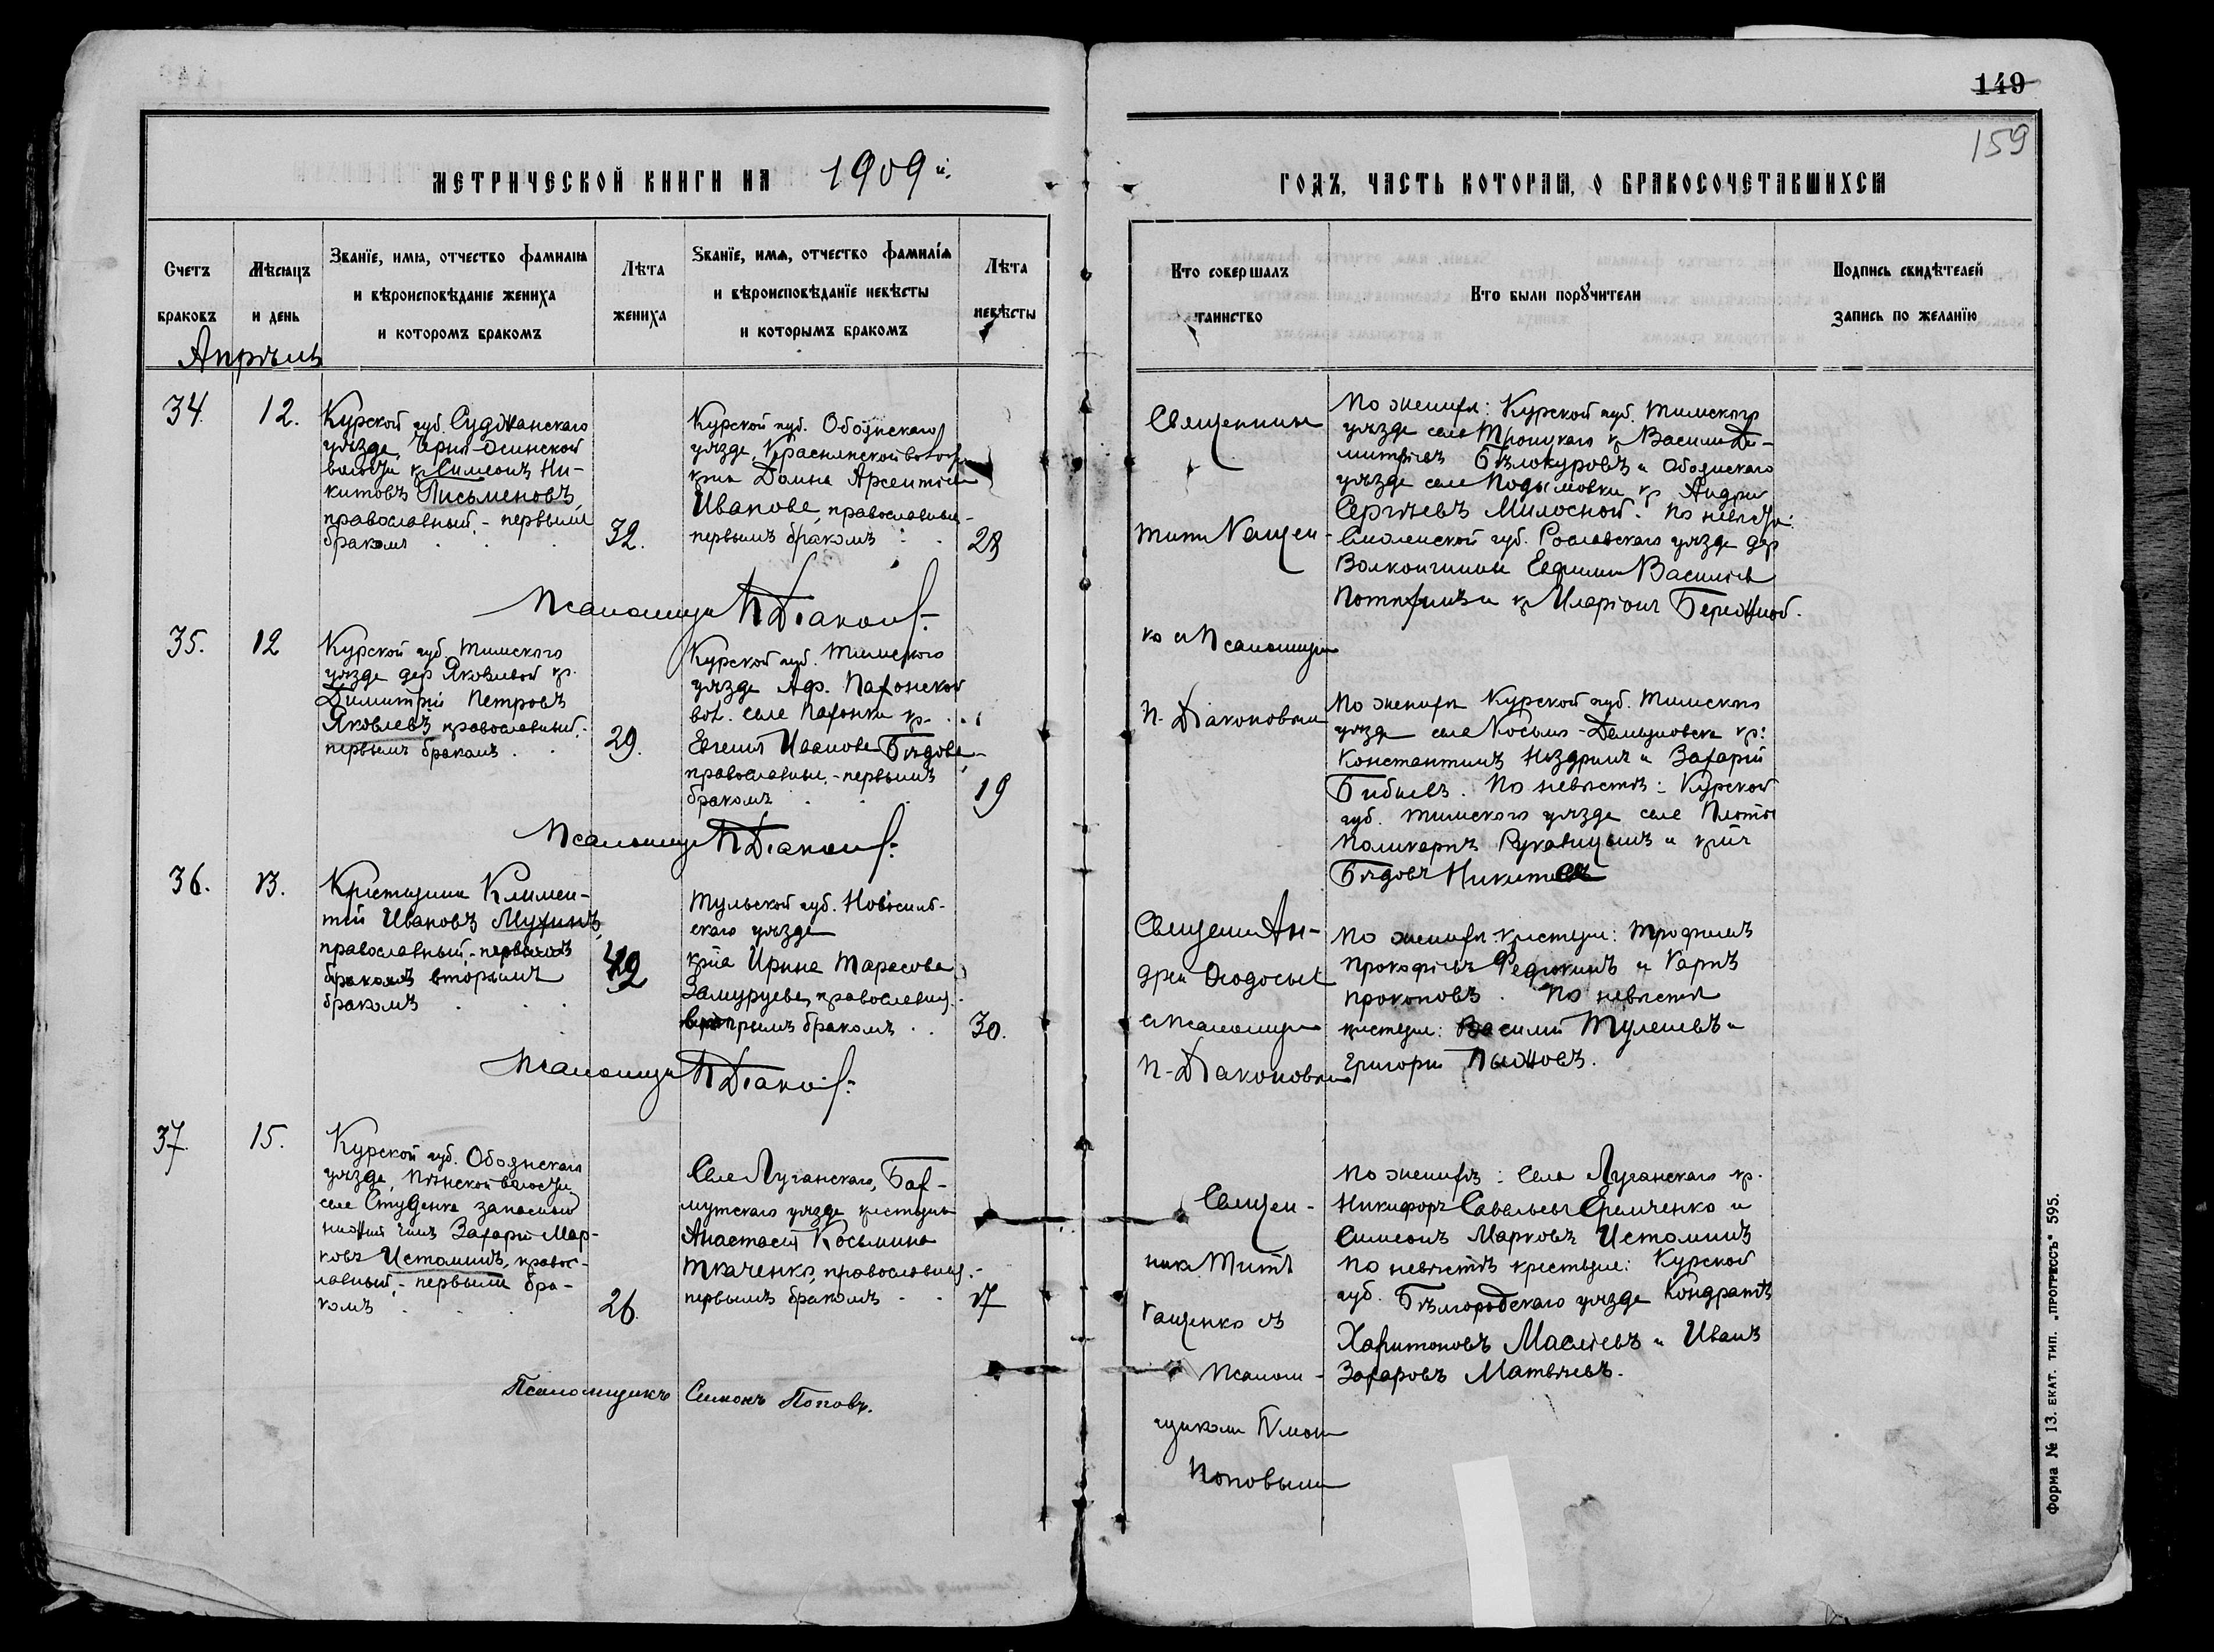 149
159
МЕТРИЧЕСКОЙ КНИГИ НА 1909 й.
ГОДЪ, ЧАСТЬ ВТОРАЯ, О БРАКОСОЧЕТАВШИХСЯ
Счетъ браковъ
Мѣсяцъ и день
Званїе, имя, отчество фамилїя
и вѣроисповѣданїе жениха
и которомъ бракомъ
Лѣта жениха
Званїе, имя, отчество фамилїя
и вѣроисповѣданїе невѣсты
и которымъ бракомъ
Лѣта невѣсты
Кто совершалъ таинство
Кто были поручители
Подпись свидѣтелей
запись по желанїю
Апрѣль
34.
12.
Курской губ. Суджанскаго
уѣзда, Черно-Осинской
волости кр. Симеонъ Ни-
китовъ Письменовъ,
православный,- первымъ
бракомъ
32.
Курской губ. Обоянскаго
уѣзда, Краснянской волости
кр-ка Домна Арсентіева
Иванова, православная-
первымъ бракомъ
28
Псаломщикъ П Діаконов
Священникъ
Титъ Кащен-
ко съ Псаломщик
П. Діаконовым
По женихѣ: Курской губ. Тимскаго
уѣзда села Троицкаго кр Василій Ди-
митріевъ Бѣлокуровъ и Обоянскаго
уѣзда села Подымовки кр Андрей
Сергѣевъ Милосной. По невѣстѣ:
Смоленской губ. Рославскаго уѣзда дер
Евфимий Василіев
и кр Иларіонъ Бережной.
35.
12
Курской губ. Тимскаго
уѣзда дер Яковлевой кр.
Димитрій Петровъ
Яковлевъ православный,-
первымъ бракомъ
29.
Курской губ. Тимскаго
уѣзда Аф. Пахонской
вол. села Пахонки кр.
Евгенія Иванова Бѣдова,-
православная,- первымъ
бракомъ
19
Псаломщ П Діаконов
По женихѣ Курской губ. Тимскаго
уѣзда села Косьмо-Демьяновска кр:
Константинъ Ноздринъ и Захарій
Бибиевъ. По невѣстѣ: Курской
губ. Тимскаго уѣзда села
Поликарпъ Рукавицынъ и кр-нъ
Бѣдовъ Никита
36.
13.
Крестьянинъ Климен-
тій Ивановъ Мухинъ,
православный,- первымъ
бракомъ вторымъ
бракомъ
42
Тульской губ. Новосиль-
скаго уѣзда
кр-ка Ирина Тарасова
Замуруева, православная.
вторымъ бракомъ
30.
Псаломщ П Діаконов
Священ Ан-
дрей Ѳеодосьев
съ псаломщик
П. Діаконовым
По женихѣ: крестьян: Трофимъ
Прокофіевъ Федюкинъ и Карпъ
Прокоповъ. По невѣстѣ
крестьян: Василій Тулешевъ и
Григорій Пыжовъ.
37.
15.
Курской губ. Обоянскаго
уѣзда, волости,
села Студенка запасный
нижній чинъ Захарій Мар-
ковъ Истоминъ, правос-
лавный,- первымъ бра-
комъ
26.
Села Луганскаго, Бах-
мутскаго уѣзда крестьян
Анастасія Косьмина
Ткаченко, православная.-
первымъ бракомъ
17
Псаломщикъ Симонъ Поповъ.
Священ-
никъ Титъ
Кащенко съ
Псалом-
щикомъ Симон
Поповым
По женихѣ: села Луганскаго кр.
Никифоръ Савельевъ Еремченко и
Симеонъ Марковъ Истоминъ
По невѣстѣ крестьяне: Курской
губ. Бѣлгородскаго уѣзда Кондратъ
Харитоновъ Маслиевъ и Иванъ
Захаровъ Матвѣевъ.
Форма № 13. ЕКАТ. ТИП. „ПРОГРЕССЪ" 595.